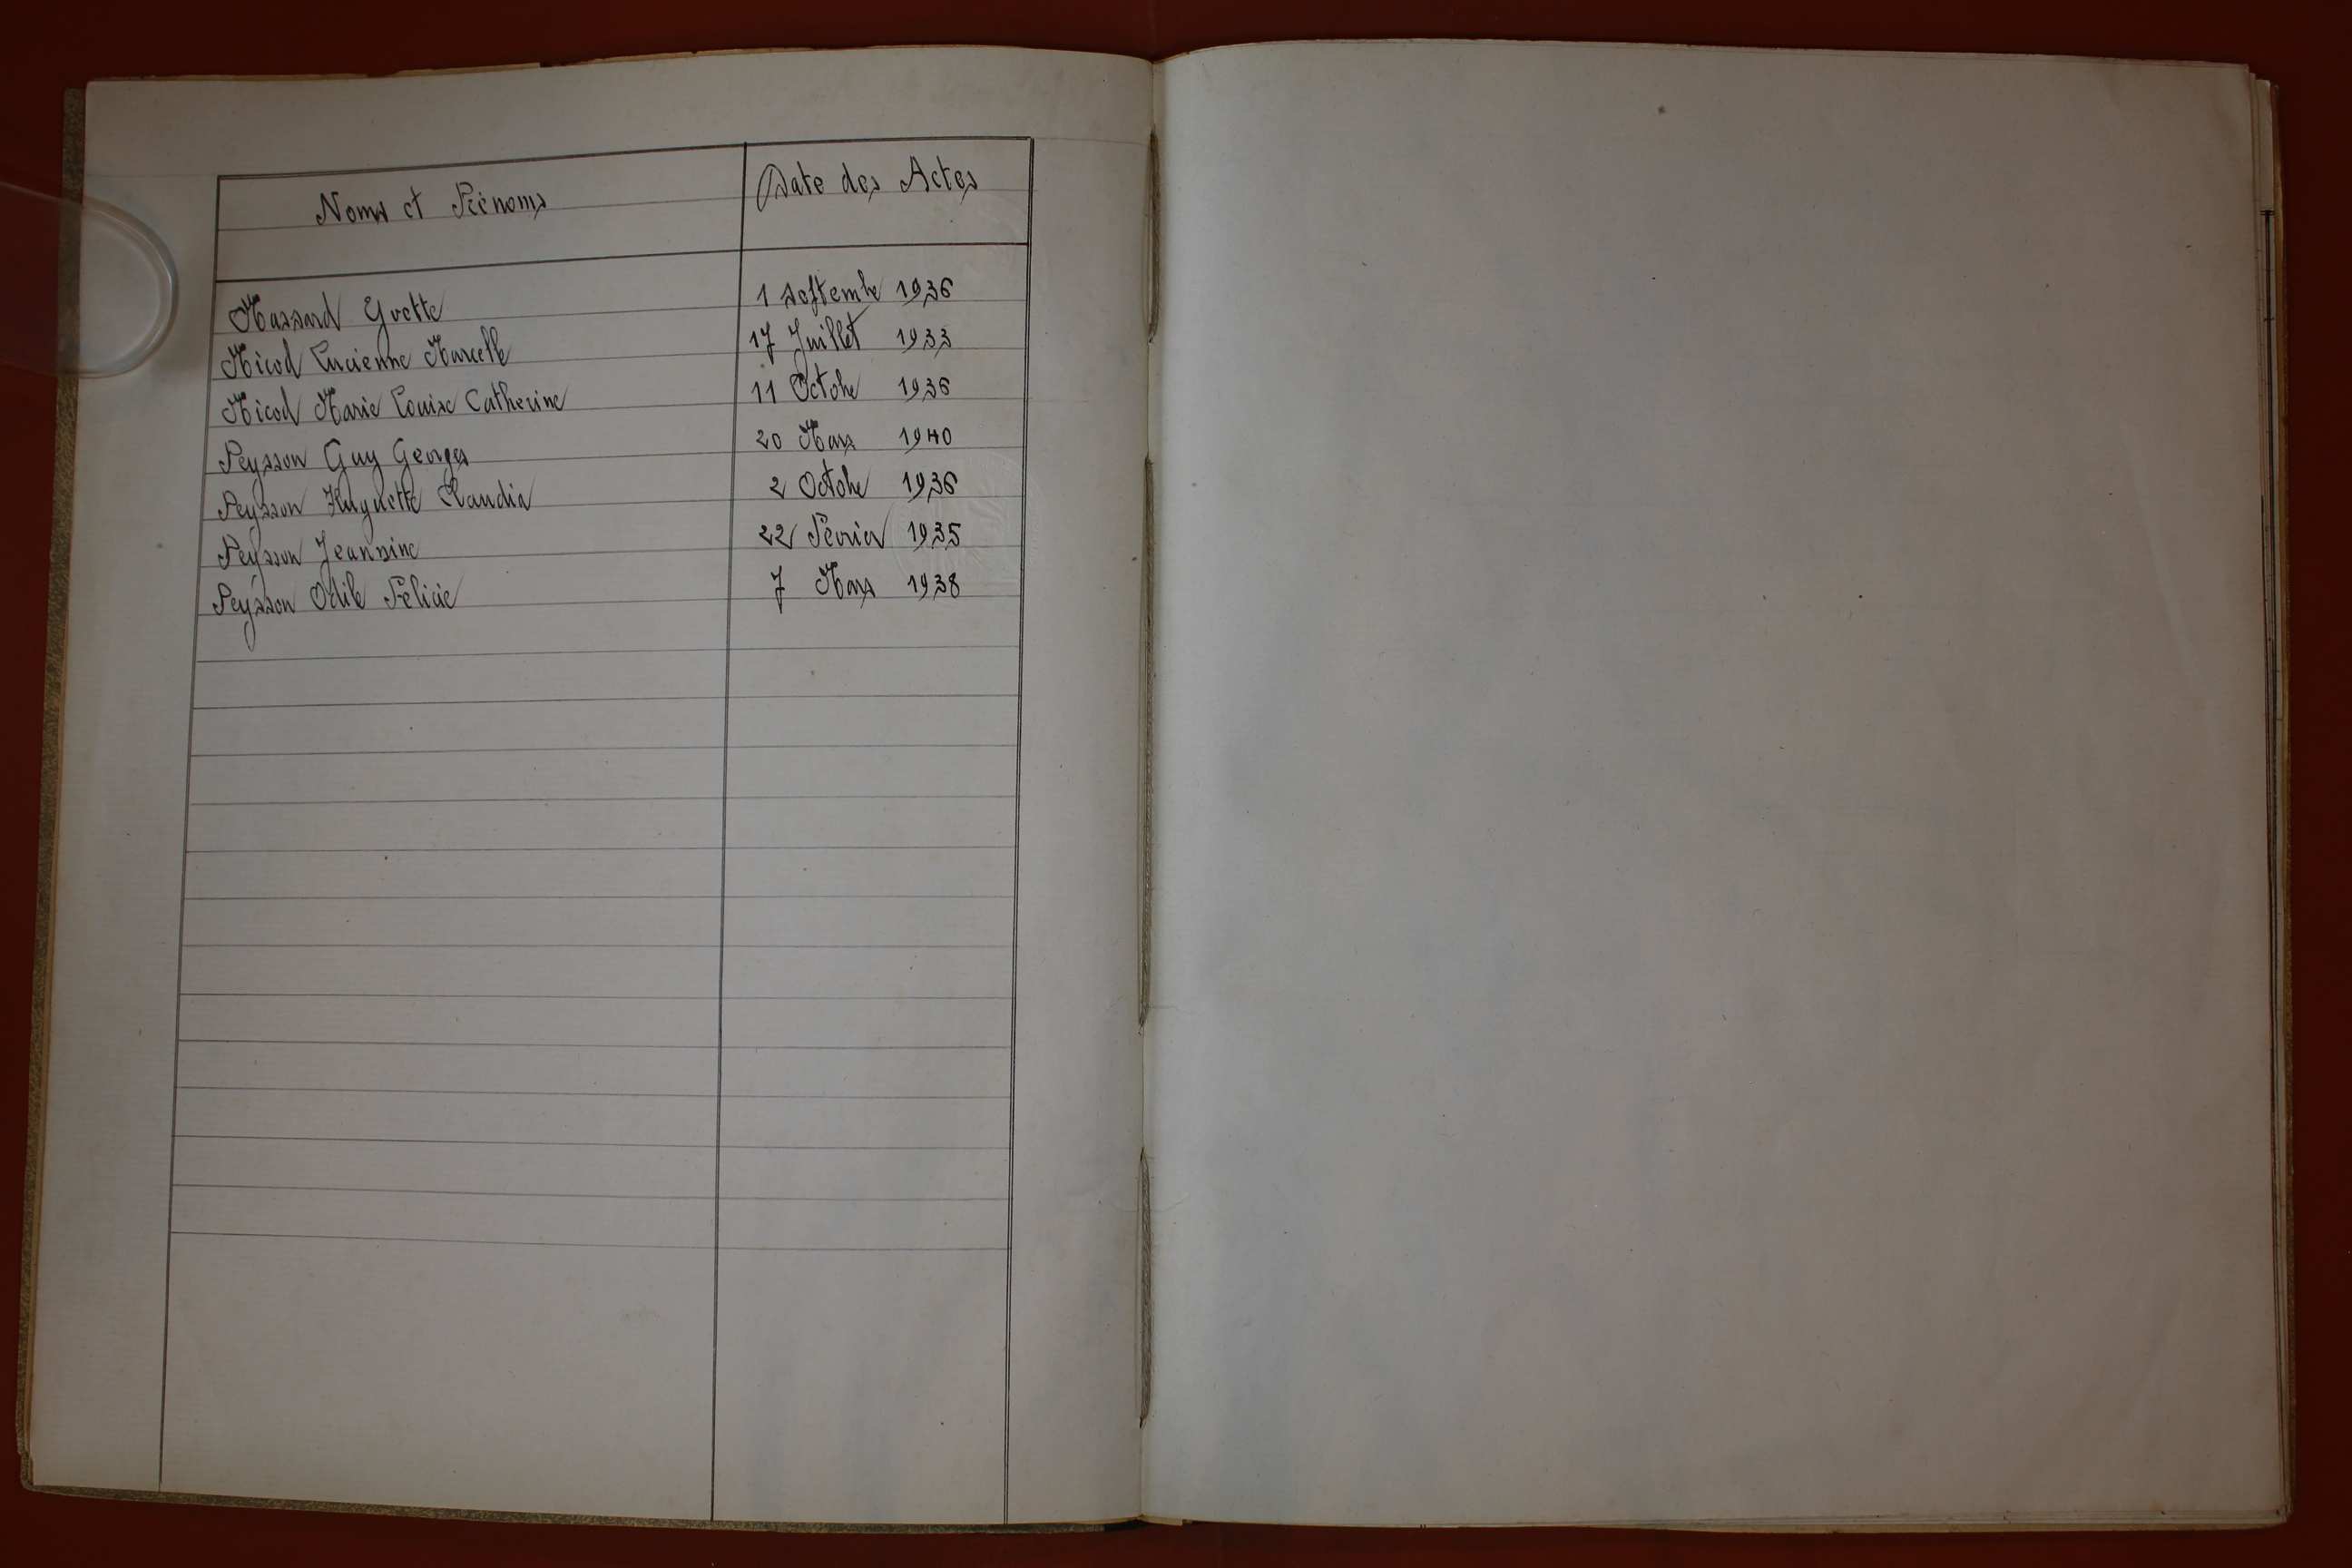 Noms et Prénoms Date des Actes
Massard Yvette 1 Septembre 1936
Nicod Lucienne Marcelle 17 Juillet 1933
Nicod Marie Louise Catherine 11 Octobre 1936
Peysson Guy Georges 20 Mars 1940
Peysson Huguette Claudia 2 Octobre 1936
Peysson Jeannine 22 Février 1935
Peysson Odile Félicie 7 Mars 1938